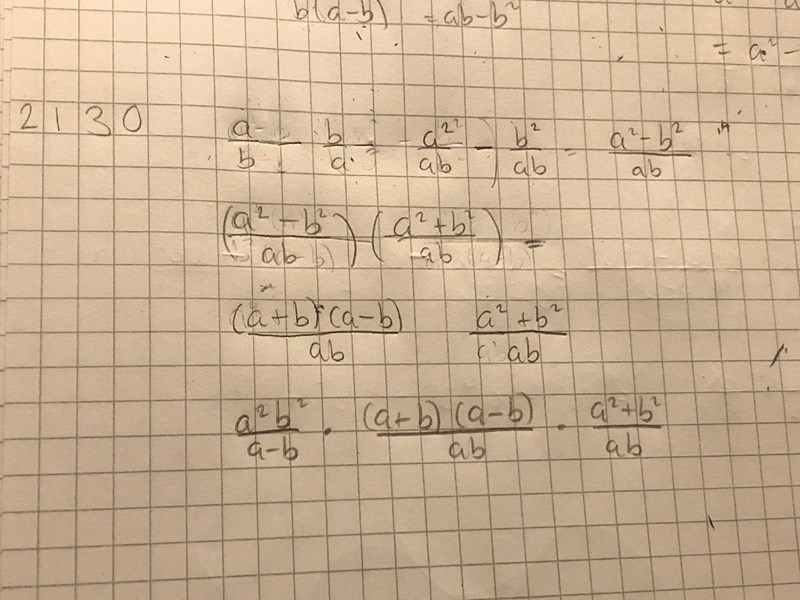 b(a-b) = ab-b²
= a² -
2130
a/b - b/a = a²/ab - b²/ab = a²-b²/ab
(a²-b²/ab) (a²+b²/ab) =
(a+b)(a-b)/ab a²+b²/ab
a²b²/a-b · (a+b)(a-b)/ab · a²+b²/ab